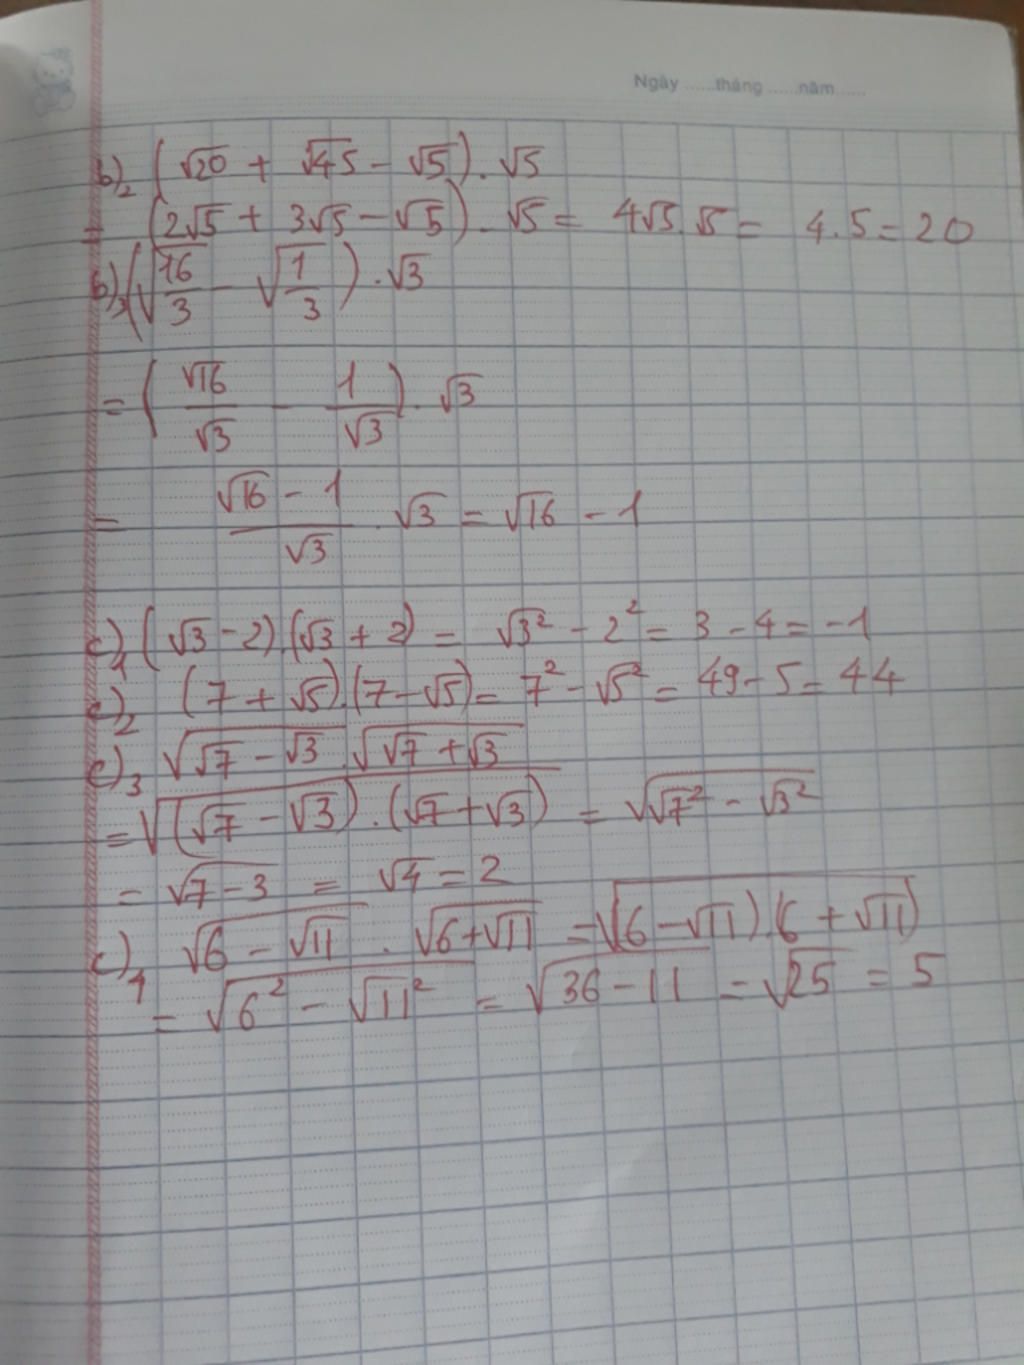 Ngày ......tháng ......năm......
b)₂ (√20 + √45 - √5) . √5
= (2√5 + 3√5 - √5) . √5 = 4√5.√5 = 4.5 = 20
b)₃ (√(16/3) - √(1/3)) . √3
= (√16/√3 - 1/√3) . √3
= (√16 - 1)/√3 . √3 = √16 - 1
c)₁ (√3 - 2).(√3 + 2) = √3² - 2² = 3 - 4 = -1
c)₂ (7 + √5).(7 - √5) = 7² - √5² = 49 - 5 = 44
c)₃ √(√7 - √3) . √(√7 + √3)
= √((√7 - √3) . (√7 + √3)) = √(√7² - √3²)
= √(7 - 3) = √4 = 2
c)₄ √(6 - √11) . √(6 + √11) = √((6 - √11).(6 + √11))
= √(6² - √11²) = √(36 - 11) = √25 = 5